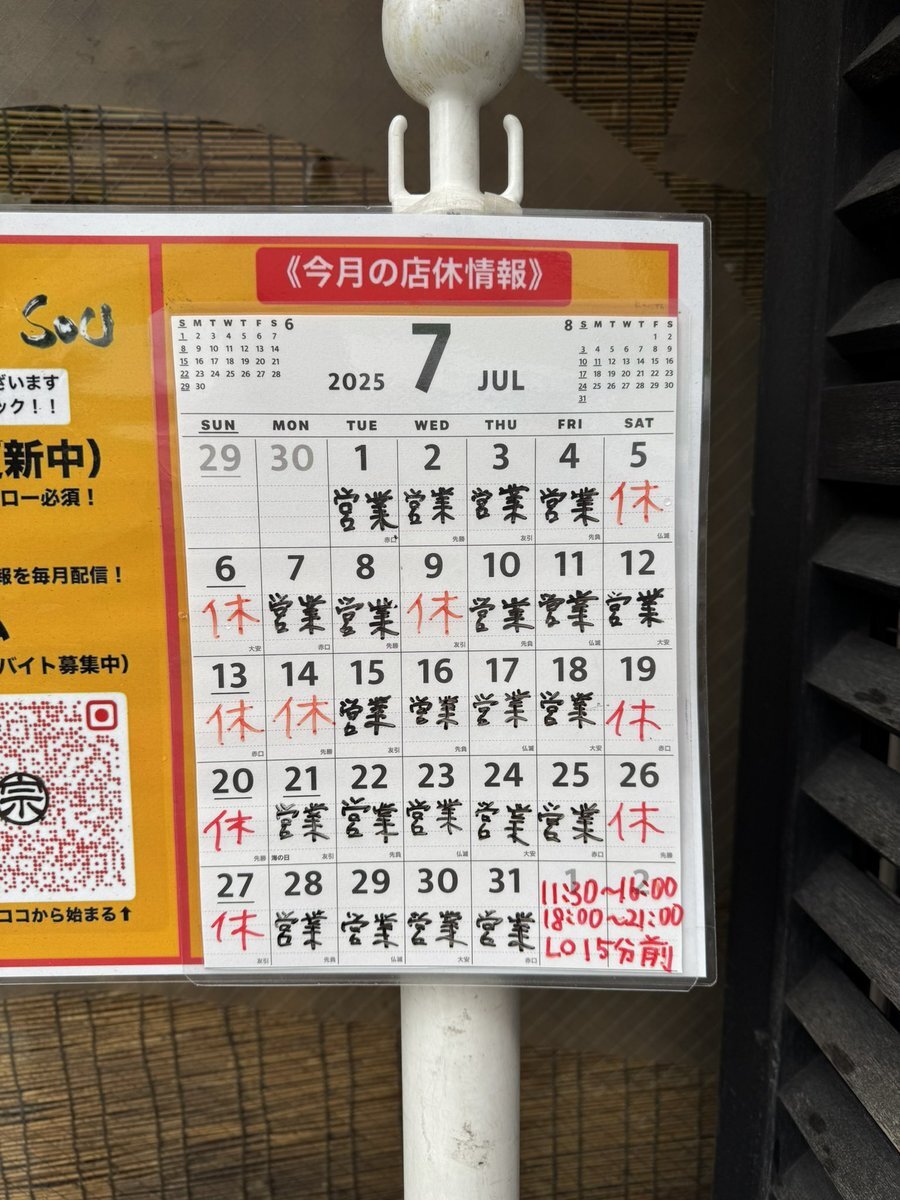 SOU
ざいます
ック！！
新中)
ロー必須！
報を毎月配信！
バイト募集中)
宗
ココから始まる⬆
《今月の店休情報》
S M T W T F S 6
1 2 3 4 5 6 7
8 9 10 11 12 13 14
15 16 17 18 19 20 21
22 23 24 25 26 27 28
29 30
2025 7 JUL
8 S M T W T F S
1 2
3 4 5 6 7 8 9
10 11 12 13 14 15 16
17 18 19 20 21 22 23
24 25 26 27 28 29 30
31
SUN MON TUE WED THU FRI SAT
29 30 1 2 3 4 5
営業 営業 営業 営業 休
赤口 先勝 友引 先負 仏滅
6 7 8 9 10 11 12
休 営業 営業 休 営業 営業 営業
大安 赤口 先勝 友引 先負 仏滅 大安
13 14 15 16 17 18 19
休 休 営業 営業 営業 営業 休
赤口 先勝 友引 先負 仏滅 大安 赤口
20 21 22 23 24 25 26
休 営業 営業 営業 営業 営業 休
先勝 海の日 友引 先負 仏滅 大安 赤口 先勝
27 28 29 30 31 1 2
休 営業 営業 営業 営業
友引 先負 仏滅 大安 赤口
11:30〜16:00
18:00〜21:00
LO 15分前